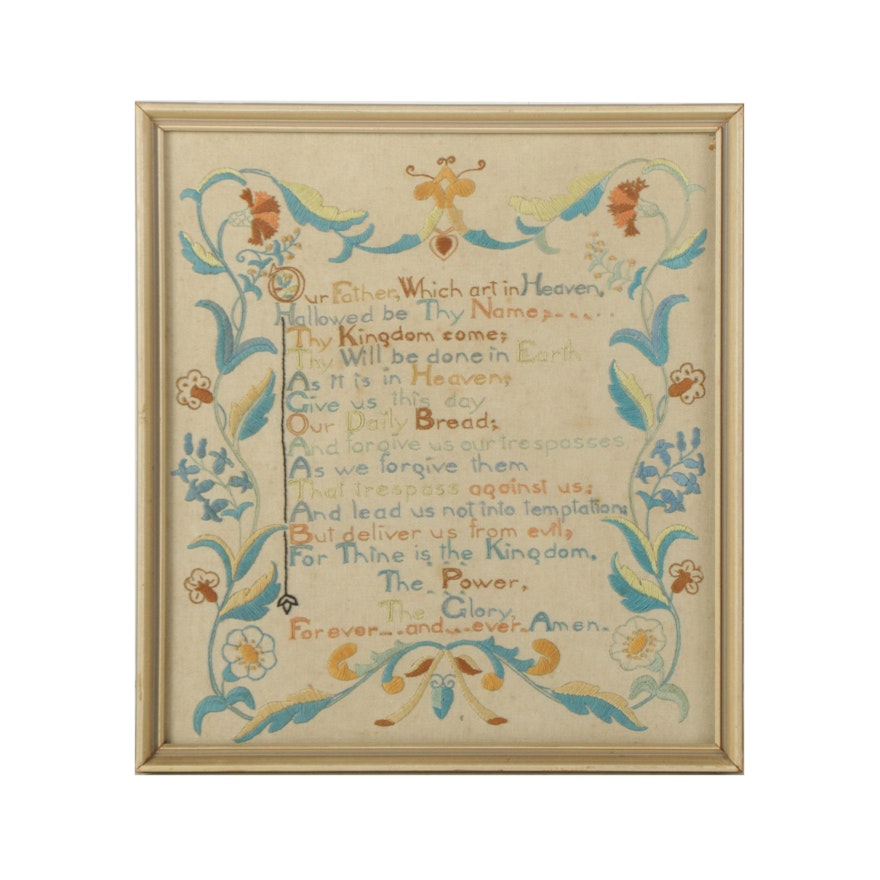 Our Father, Which art in Heaven,
Hallowed be Thy Name;.....
Thy Kingdom come;
Thy Will be done in Earth
As it is in Heaven;
Give us this day
Our Daily Bread;
And forgive us our trespasses
As we forgive them
That trespass against us;
And lead us not into temptation;
But deliver us from evil;
For Thine is the Kingdom,
The Power,
The Glory,
Forever...and...ever. Amen.